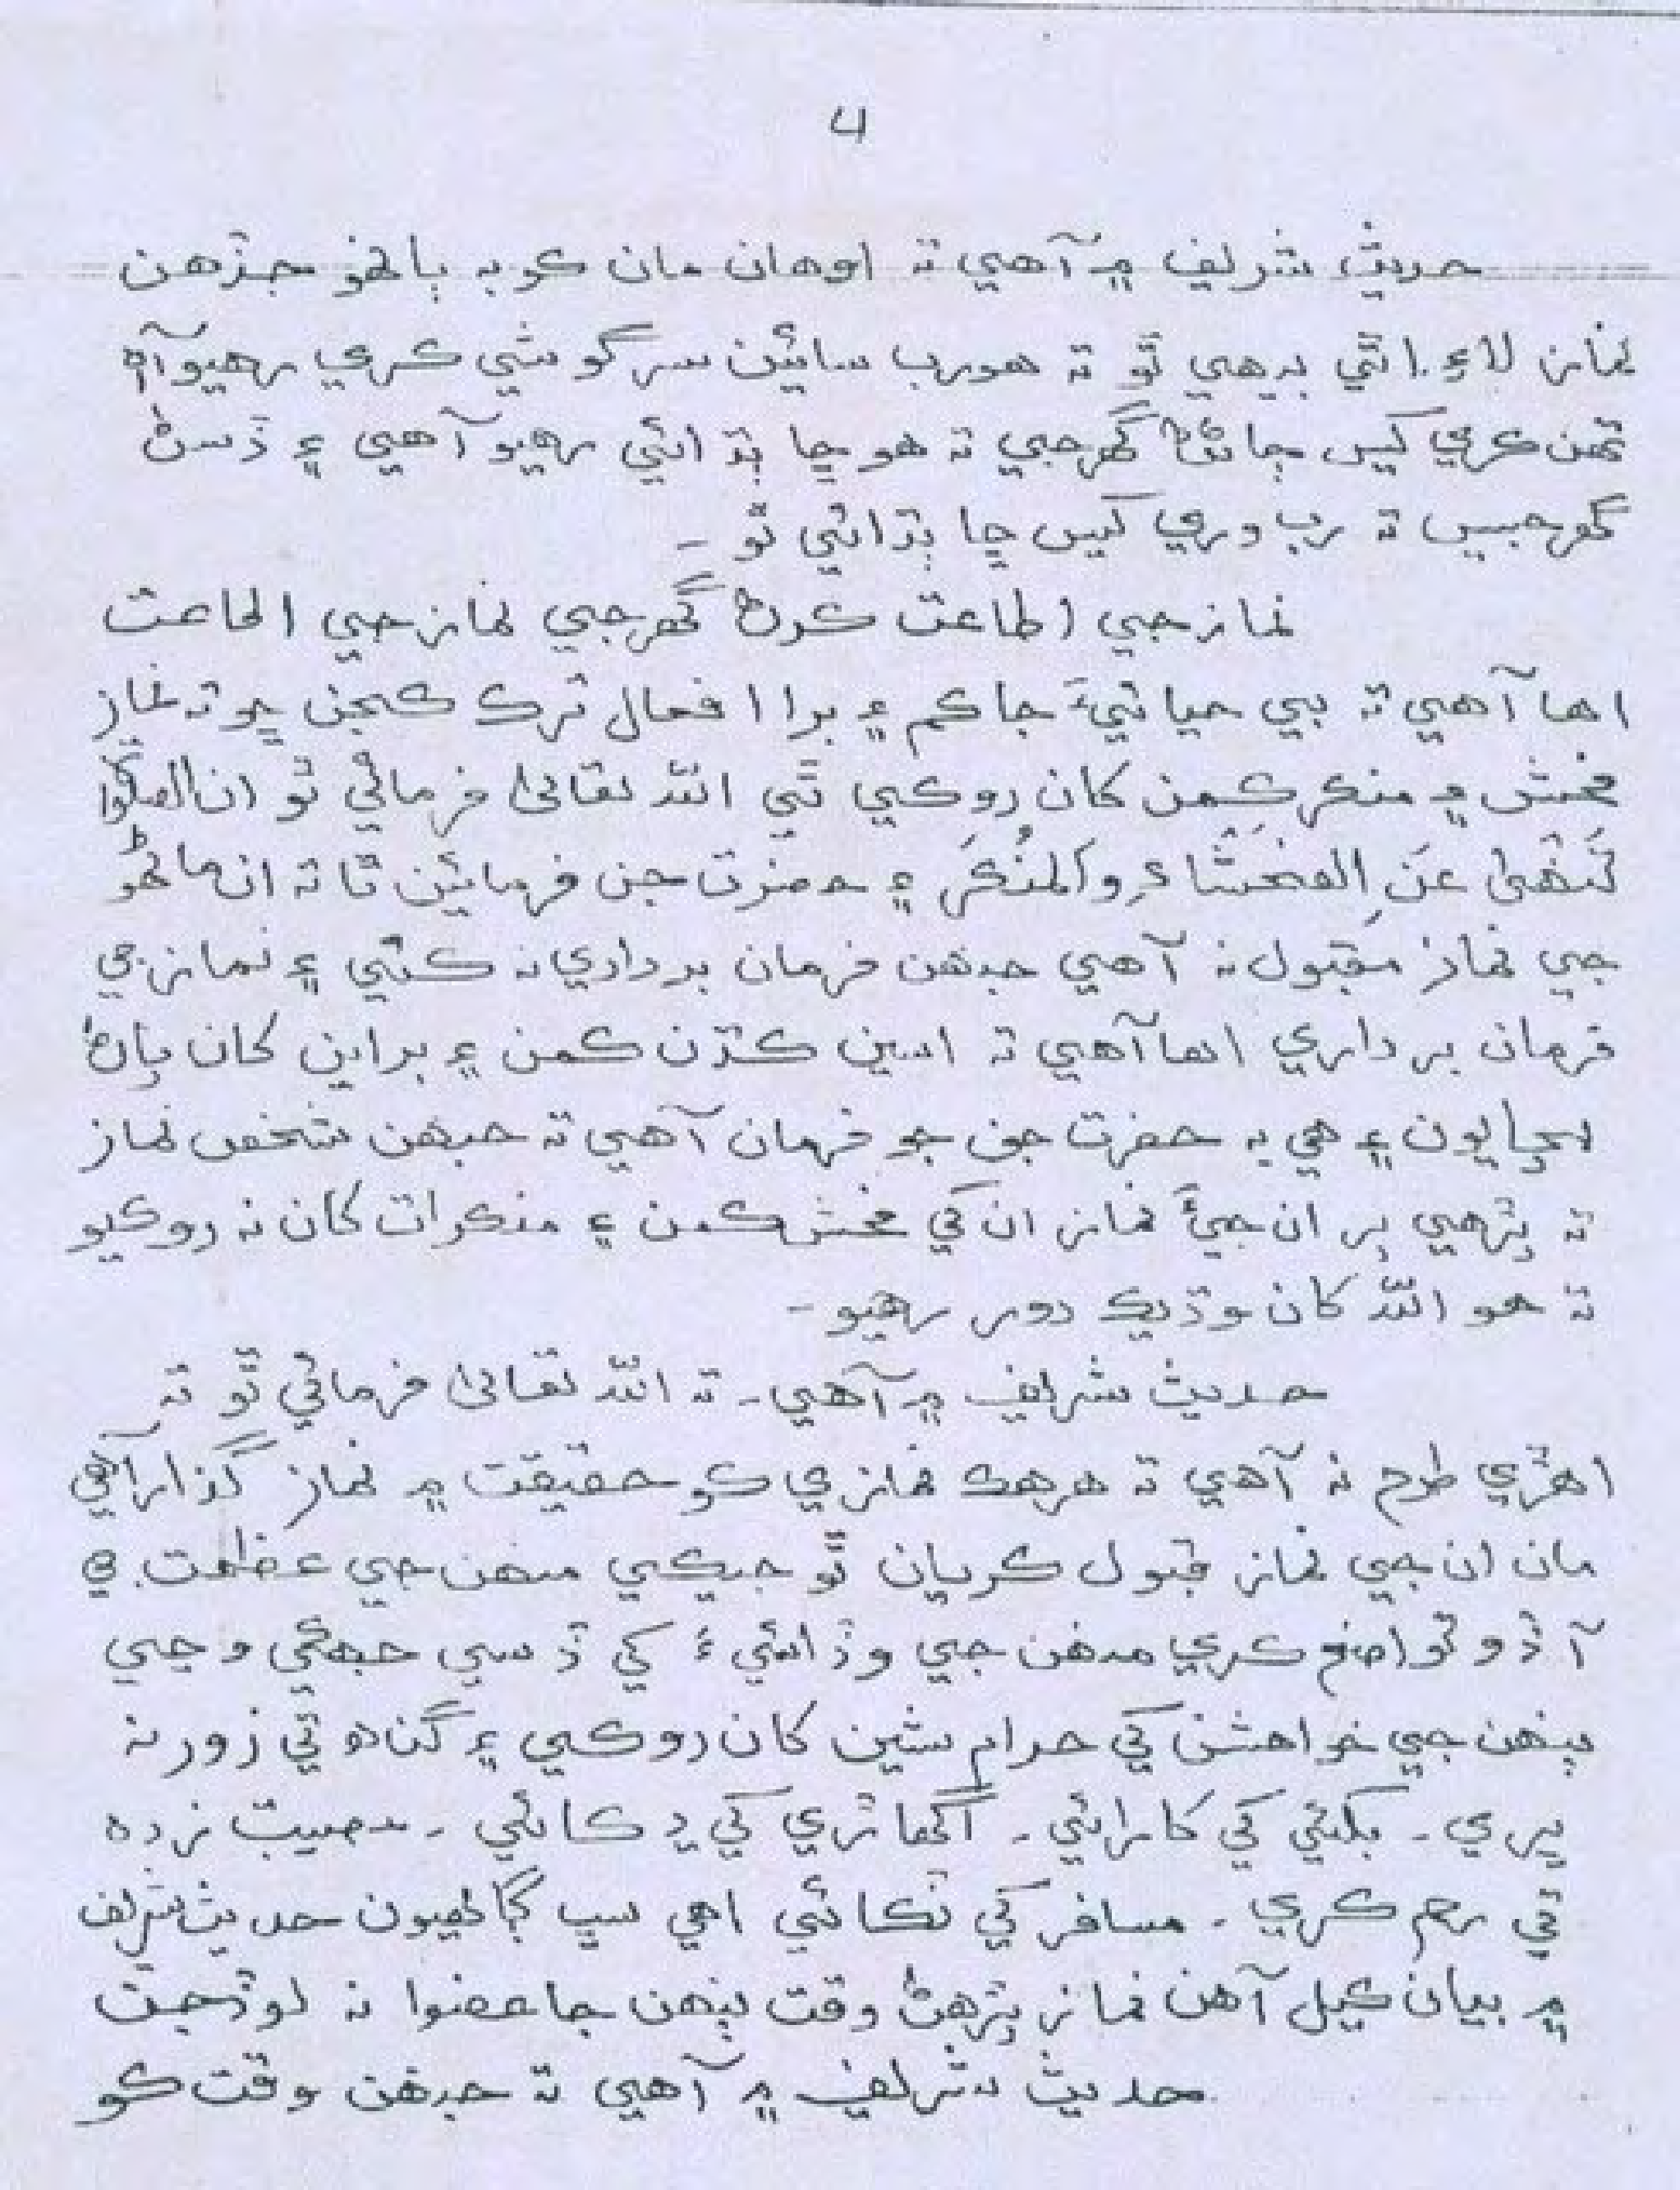 4
حديث شريف ۾ آهي ته اوهان مان ڪو به ٻانهو جڏهن
نماز لاءِ اٿي بيهي ٿو ته هو رب سائين سرگوشي ڪري رهيو آهي
تهن ڪري کيس ڄاڻڻ گهرجي ته هو ڇا ٻڌائي رهيو آهي ۽ ڏسڻ
گهرجيس ته رب وري کيس ڇا ٻڌائي ٿو -
نماز جي اطاعت ڪرڻ گهرجي نماز جي اطاعت
اها آهي ته بي حيائيءَ جا ڪم ۽ برا افعال ترڪ ڪجن ڇو ته نماز
فحش ۽ منڪر ڪمن کان روڪي ٿي الله تعاليٰ فرمائي ٿو ان الصلوٰة
تَنْهىٰ عَنِ الفحشاءِ والمُنْڪَرِ ۽ حضرت جن فرمائين ٿا ته ان ماڻهو
جي نماز مقبول نه آهي جنهن فرمان برداري نه ڪئي ۽ نماز جي
فرمان برداري اها آهي ته اسين ڪڌن ڪمن ۽ براين کان پاڻ
بچايون ۽ هي به حضرت جن جو فرمان آهي ته جنهن شخص نماز
ته پڙهي پر ان جيءَ نماز ان کي فحش ڪمن ۽ منڪرات کان نه روڪيو
ته هو الله کان وڌيڪ دور رهيو -
حديث شريف ۾ آهي - ته الله تعاليٰ فرمائي ٿو ته
اهڙي طرح نه آهي ته هر هڪ نمازي ڪو حقيقت ۾ نماز گذار آهي
مان ان جي نماز قبول ڪريان ٿو جيڪي منهن جي عظمت جي
آڏو تواضع ڪري منهن جي وڏائيءَ کي ڏسي جهڪي وڃي
پنهن جي خواهشن کي حرام شين کان روڪي ۽ گناهه تي زور نه
ڀري - بکئي کي کارائي - اگهاڙي کي ڍڪائي - مصيبت زده
تي رحم ڪري - مسافر کي ٽڪائي اهي سڀ ڳالهيون حديث شريف
۾ بيان ڪيل آهن نماز پڙهڻ وقت پنهن جا عضوا نه لوڏجن
حديث شريف ۾ آهي ته جنهن وقت ڪو